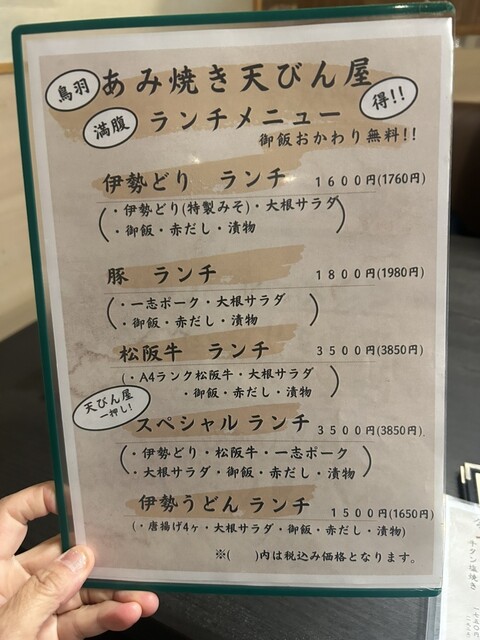 鳥羽 あみ焼き天びん屋
満腹 ランチメニュー 得!!
御飯おかわり無料!!
伊勢どり ランチ 1600円(1760円)
(・伊勢どり(特製みそ)・大根サラダ
・御飯・赤だし・漬物)
豚 ランチ 1800円(1980円)
(・一志ポーク・大根サラダ
・御飯・赤だし・漬物)
松阪牛 ランチ 3500円(3850円)
(・A4ランク松阪牛・大根サラダ
・御飯・赤だし・漬物)
天びん屋
一押し!
スペシャル ランチ 3500円(3850円)
(・伊勢どり・松阪牛・一志ポーク
・大根サラダ・御飯・赤だし・漬物)
伊勢うどん ランチ 1500円(1650円)
(・唐揚げ4ヶ・大根サラダ・御飯・赤だし・漬物)
※( )内は税込み価格となります。
牛タン塩焼き